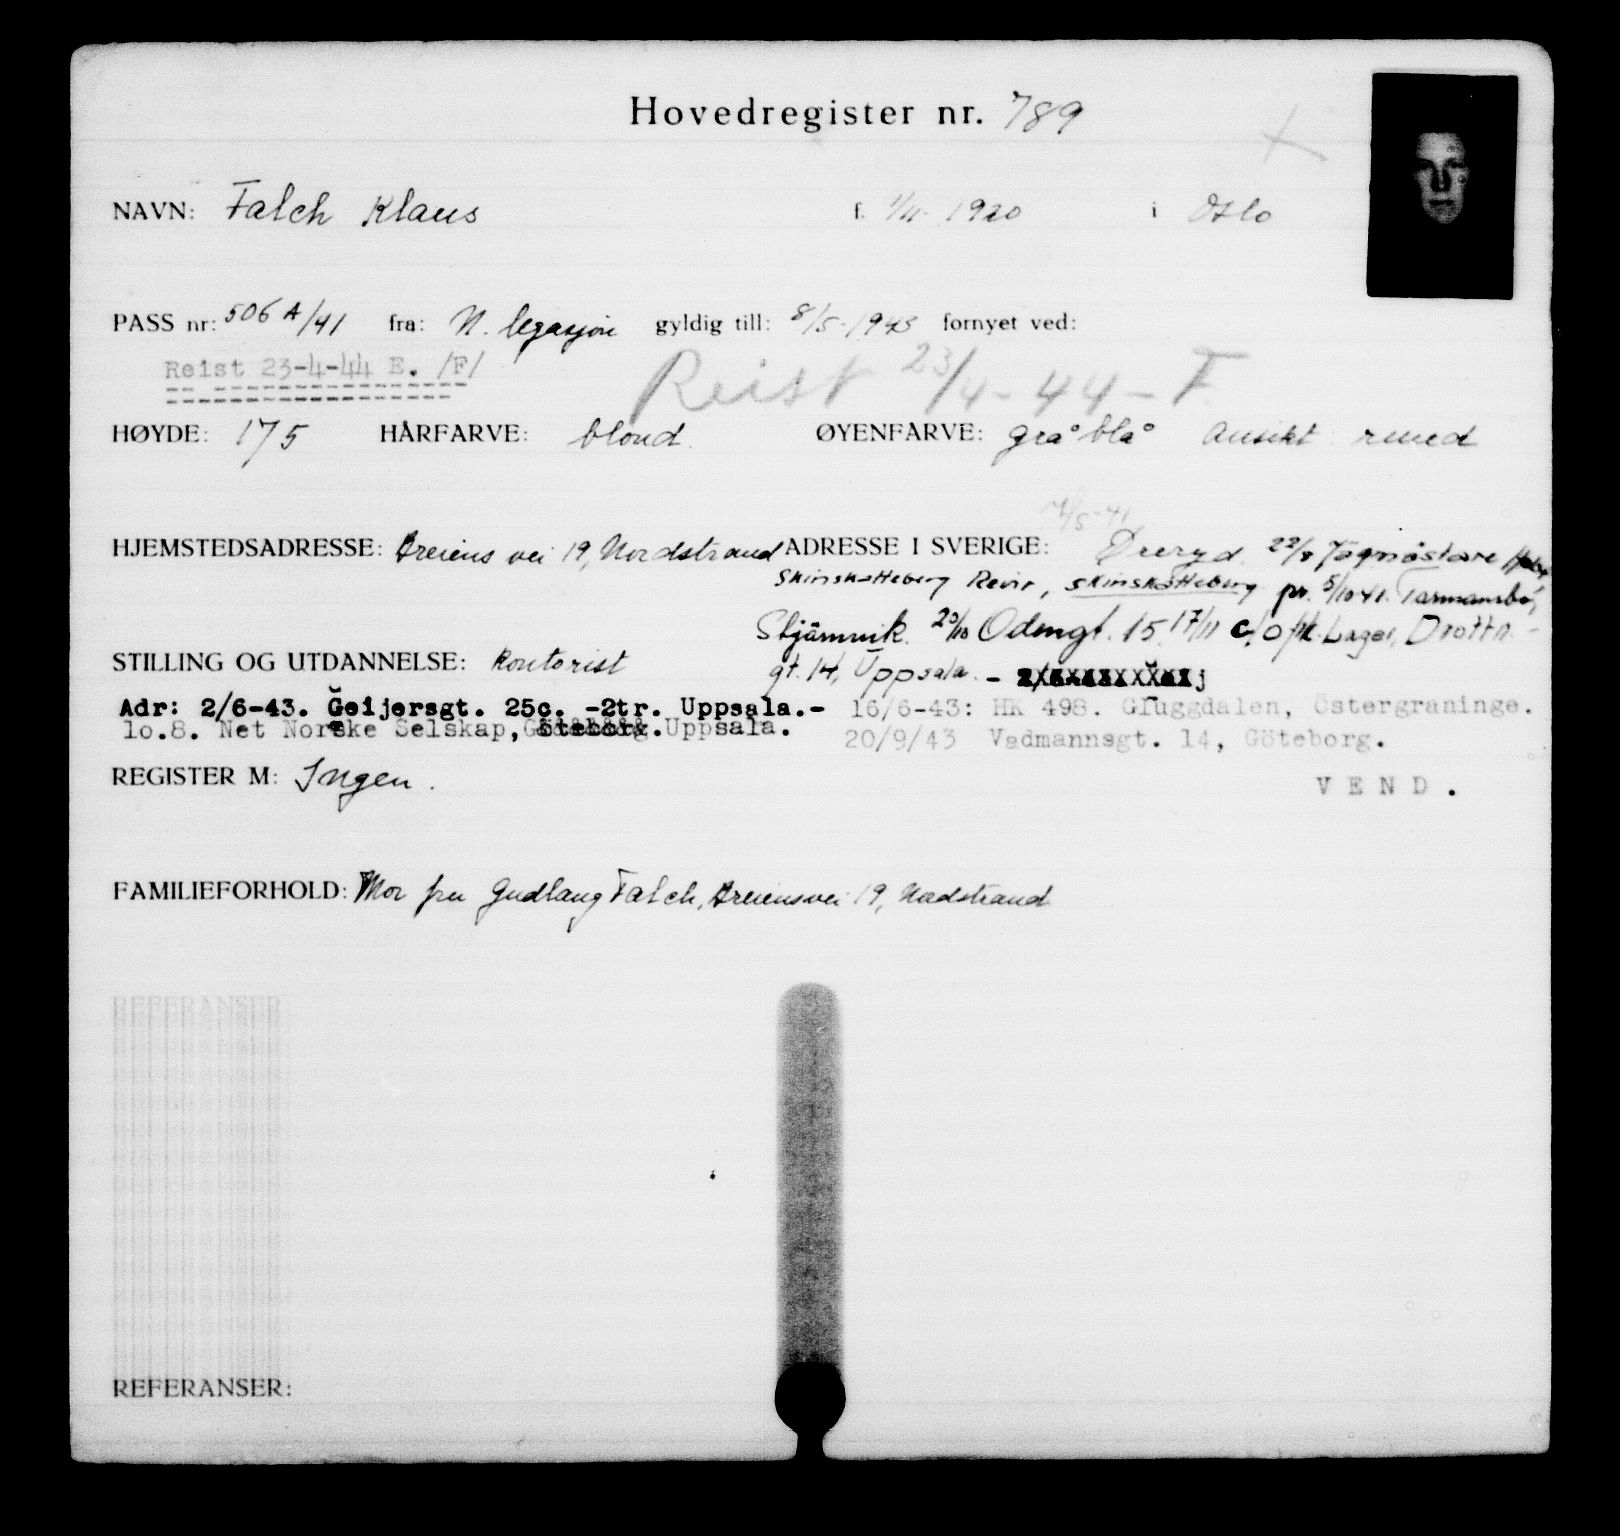 Hovedregister nr. 789
NAVN: Falch Klaus f. 1/11-1920 i Oslo
PASS nr: 506 A/41 fra: N. legasjon gyldig till: 8/5-1943 fornyet ved:
Reist 23-4-44 E. /F/ Reist 23/4-44-F
HØYDE: 175 HÅRFARVE: blond. ØYENFARVE: grå blå Ansikt rund
/5-41
HJEMSTEDSADRESSE: Breiens vei 19, Nordstrand ADRESSE I SVERIGE: Öreryd 22/8 Jägmästare
Skinskatteberg Revir, Skinskatteberg pr. 5/10 41. Tarmansbo,
Stjärnvik. 20/10 Odengt. 15. 17/11 c/o Lager, Drottn.-
STILLING OG UTDANNELSE: Kontorist gt. 14, Uppsala. -
Adr: 2/6-43. Geijersgt. 25c. -2tr. Uppsala.- 16/6-43: HK 498. Gluggdalen, Östergraninge.
10.8. Net Norske Selskap, Göteborg. Uppsala. 20/9/43 Vadmannsgt. 14, Göteborg.
REGISTER M: Ingen. VEND.
FAMILIEFORHOLD: Mor fru Gudlaug Falch, Breiensvei 19, Nordstrand
REFERANSER
REFERANSER: